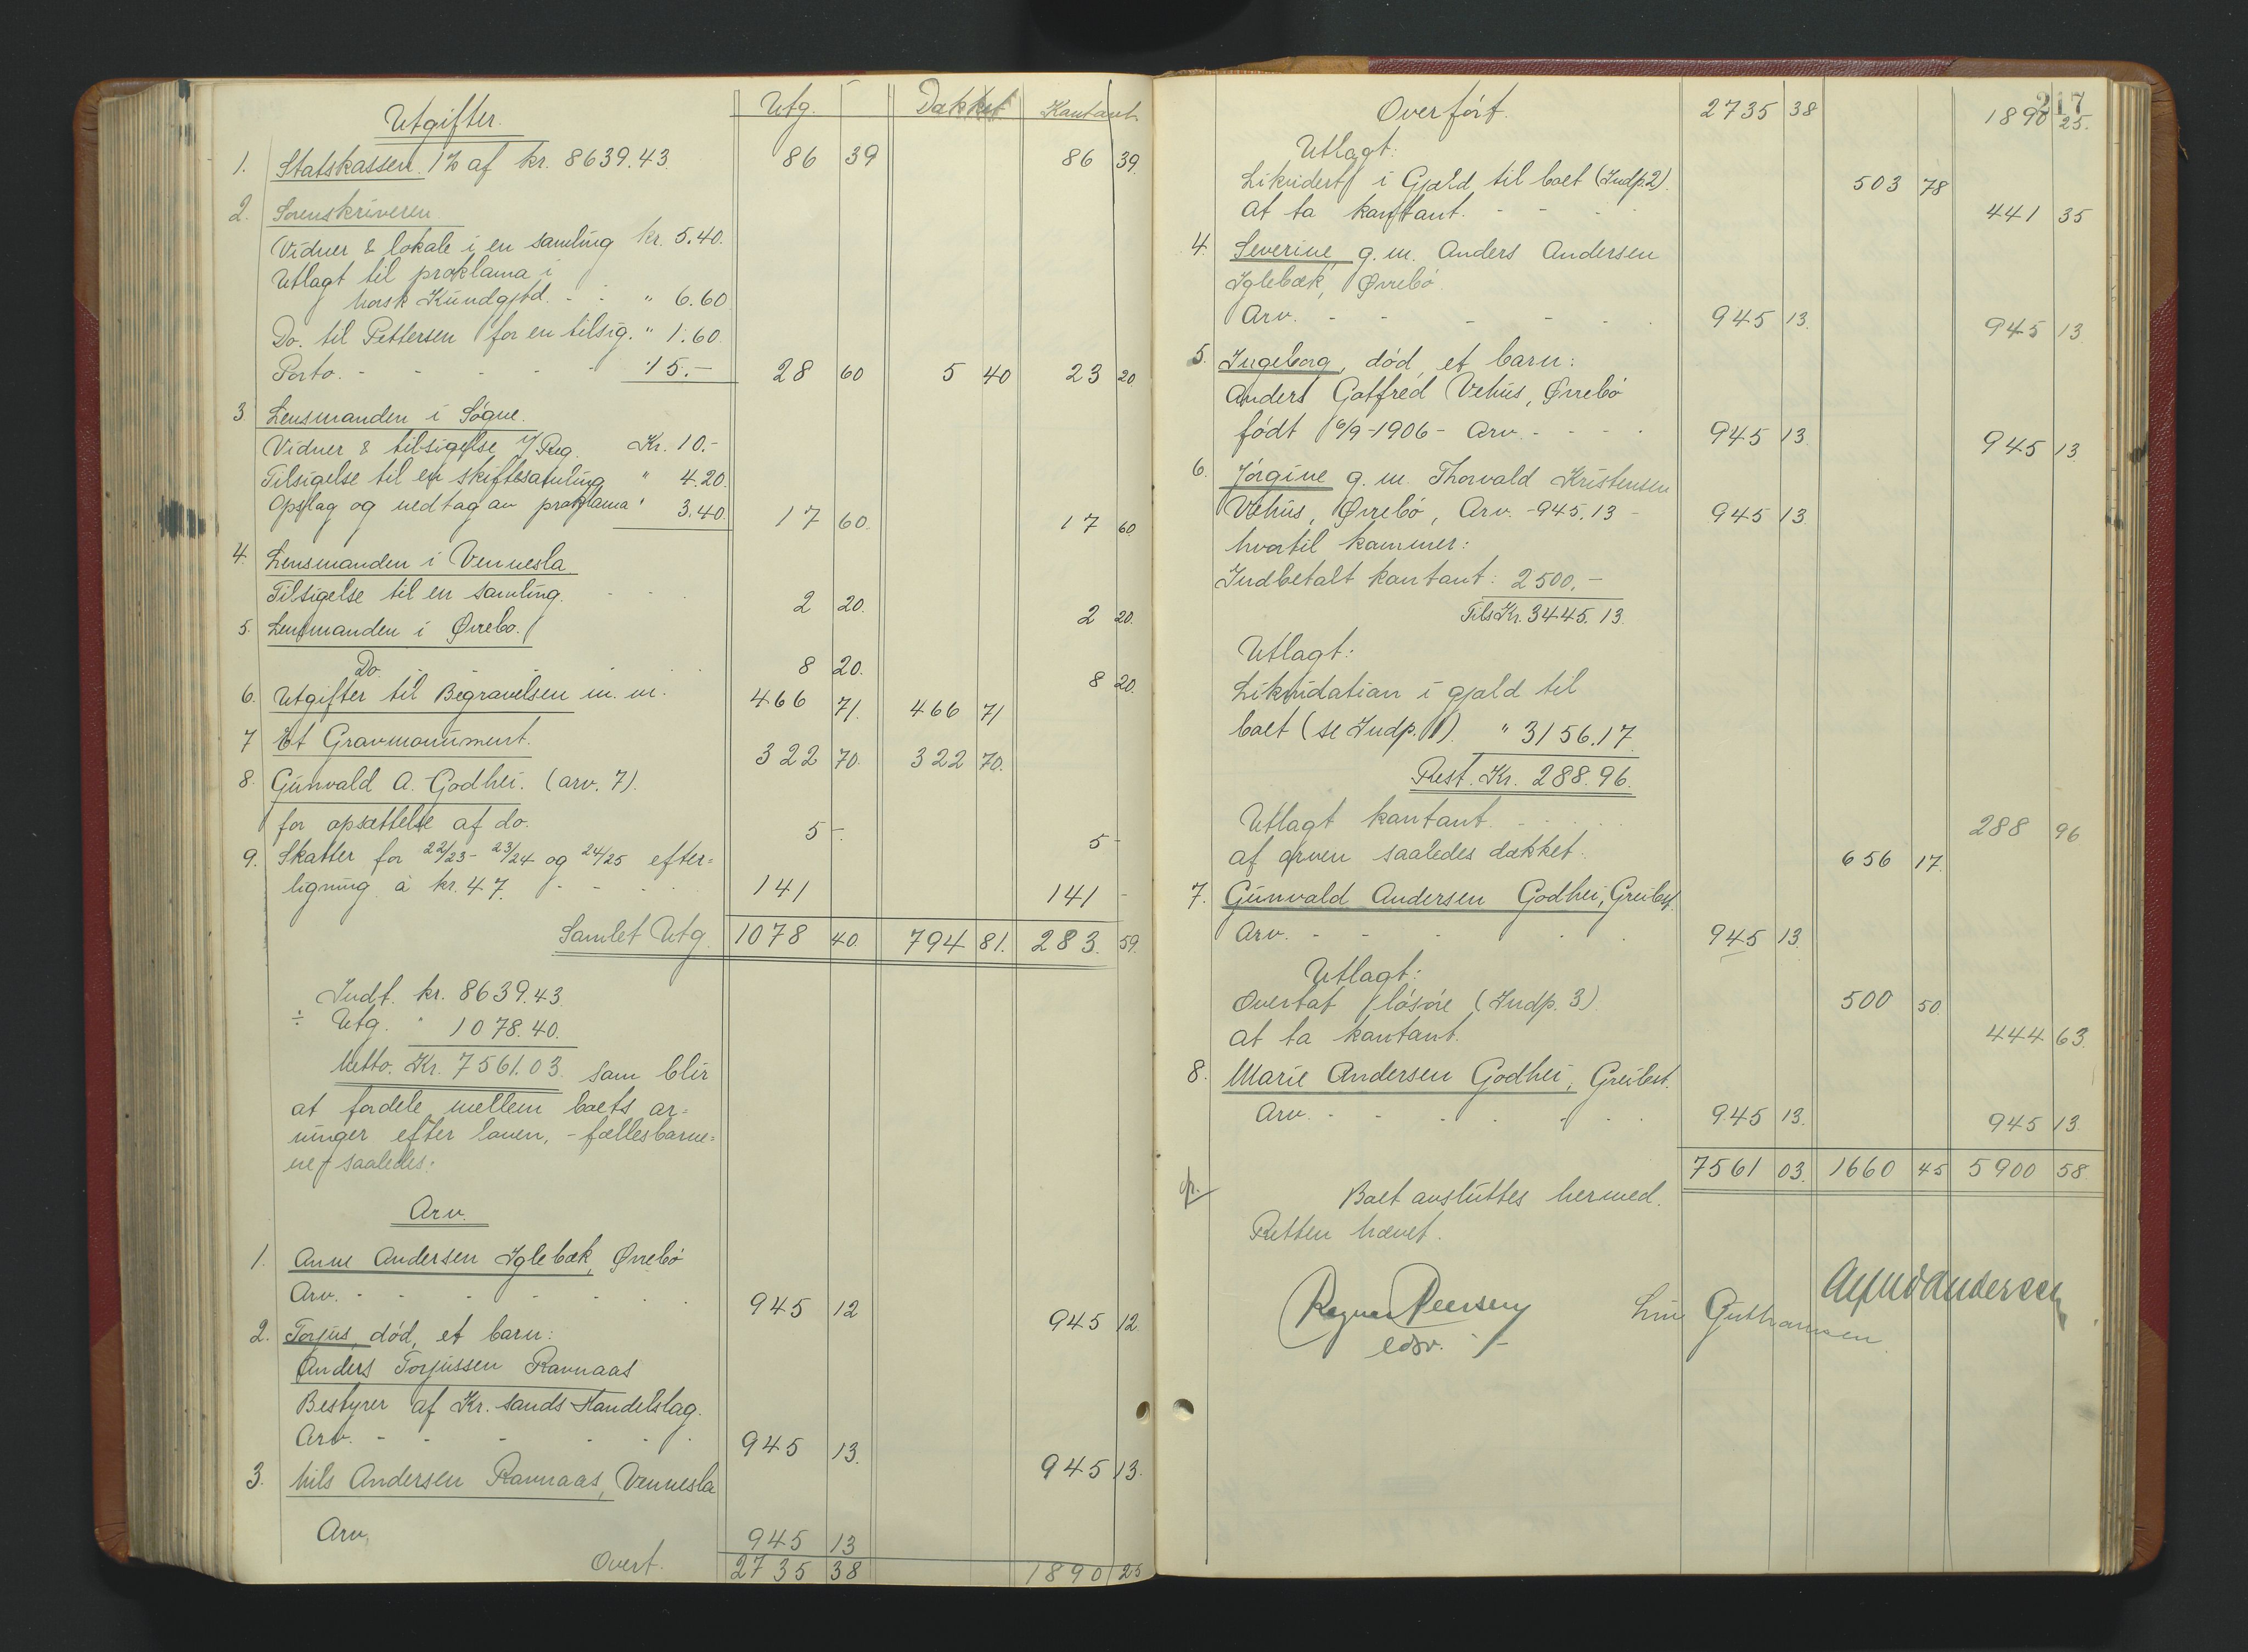 Utgifter. Utg. Dækket Kontant.
1. Statskassen 1% af kr. 8639.43 86 39 86 39.
2. Sorenskriveren
Vidner & lokale i en samling kr. 5.40.
Utlagt til proklama i
Norsk Kundgjtd. - - " 6.60
Do. til Pettersen for en tilsig. " 1.60.
Porto. - - - - - 15.- 28 60 5 40 23 20
3 Lensmanden i Søgne.
Vidner & tilsigelse v/ Reg. Kr. 10.-
Tilsigelse til en skiftesamling " 4.20.
Opslag og nedtag av proklama " 3.40. 17 60. 17 60.
4. Lensmanden i Vennesla
Tilsigelse til en samling. - - - 2 20. 2 20.
5. Lensmanden i Øvrebo.
Do. - - - - 8 20. 8 20.
6. Utgifter til Begravelsen m. m. 466 71. 466 71
7 Et Gravmonument. 322 70. 322 70.
8. Gunvald A. Godhei. (arv. 7).
for opsættelse af do. 5 -. 5 -
9. Skatter for 22/23 - 23/24 og 24/25 efter=
ligning à kr. 47. - - - 141 141 -
Samlet Utg. 1078 40. 794 81. 283. 59.
Indt. kr. 8639.43
÷ Utg. " 1078.40.
Netto. Kr. 7561.03 som blir
at fordele mellem boets ar=
vinger efter loven, - fællesbarne=
ne - saaledes:
Arv.
1. Anne Andersen Iglebæk, Øvrebö
Arv. - - - - - - 945 12 945 12
2. Torjus, død, et barn:
Anders Torjussen Ravnaas
Bestyrer af Kr.sands Handelslag.
Arv. - - - - - . 945 13. 945 13.
3. Nils Andersen Ravnaas, Vennesla
Arv, 945 13
Overf. 2735 38 1890 25
217
Overført. 2735 38 1890 25.
Utlagt:
Likvidert i Gjæld til boet (Indp. 2). 503 78
at ta kontant. - - - 441 35
4. Severine g. m. Anders Andersen
Iglebæk, Øvrebö
Arv. - - - - - . 945 13. 945 13
5. Ingeborg, död, et barn:
Anders Gotfred Vehus, Øvrebö
født 16/9-1906 - Arv. - - - - 945 13. 945 13
6. Jörgine g. m. Thorvald Kristensen
Vehus, Øvrebö, Arv. - 945.13 - 945 13
hvortil kommer:
Indbetalt kontant: 2500.-
Tils. Kr. 3445.13.
Utlagt:
Likvidation i gjæld til
boet (se Indp. 1). " 3156.17
Rest. Kr. 288.96.
Utlagt kontant. - - - - 288 96
af arven saaledes dækket. 656 17.
7. Gunvald Andersen Godhei, Greibest.
Arv. - - - - - 945 13.
Utlagt:
Overtat lösöre (Indp. 3) 500 50
at ta kontant. 444 63.
8. Marie Andersen Godhei, Greibest.
Arv. - - - - - - 945 13. 945 13
7561 03. 1660 45 5900 58
Boet avsluttes hermed.
Retten hævet.
Alfred Andersen
edsv.